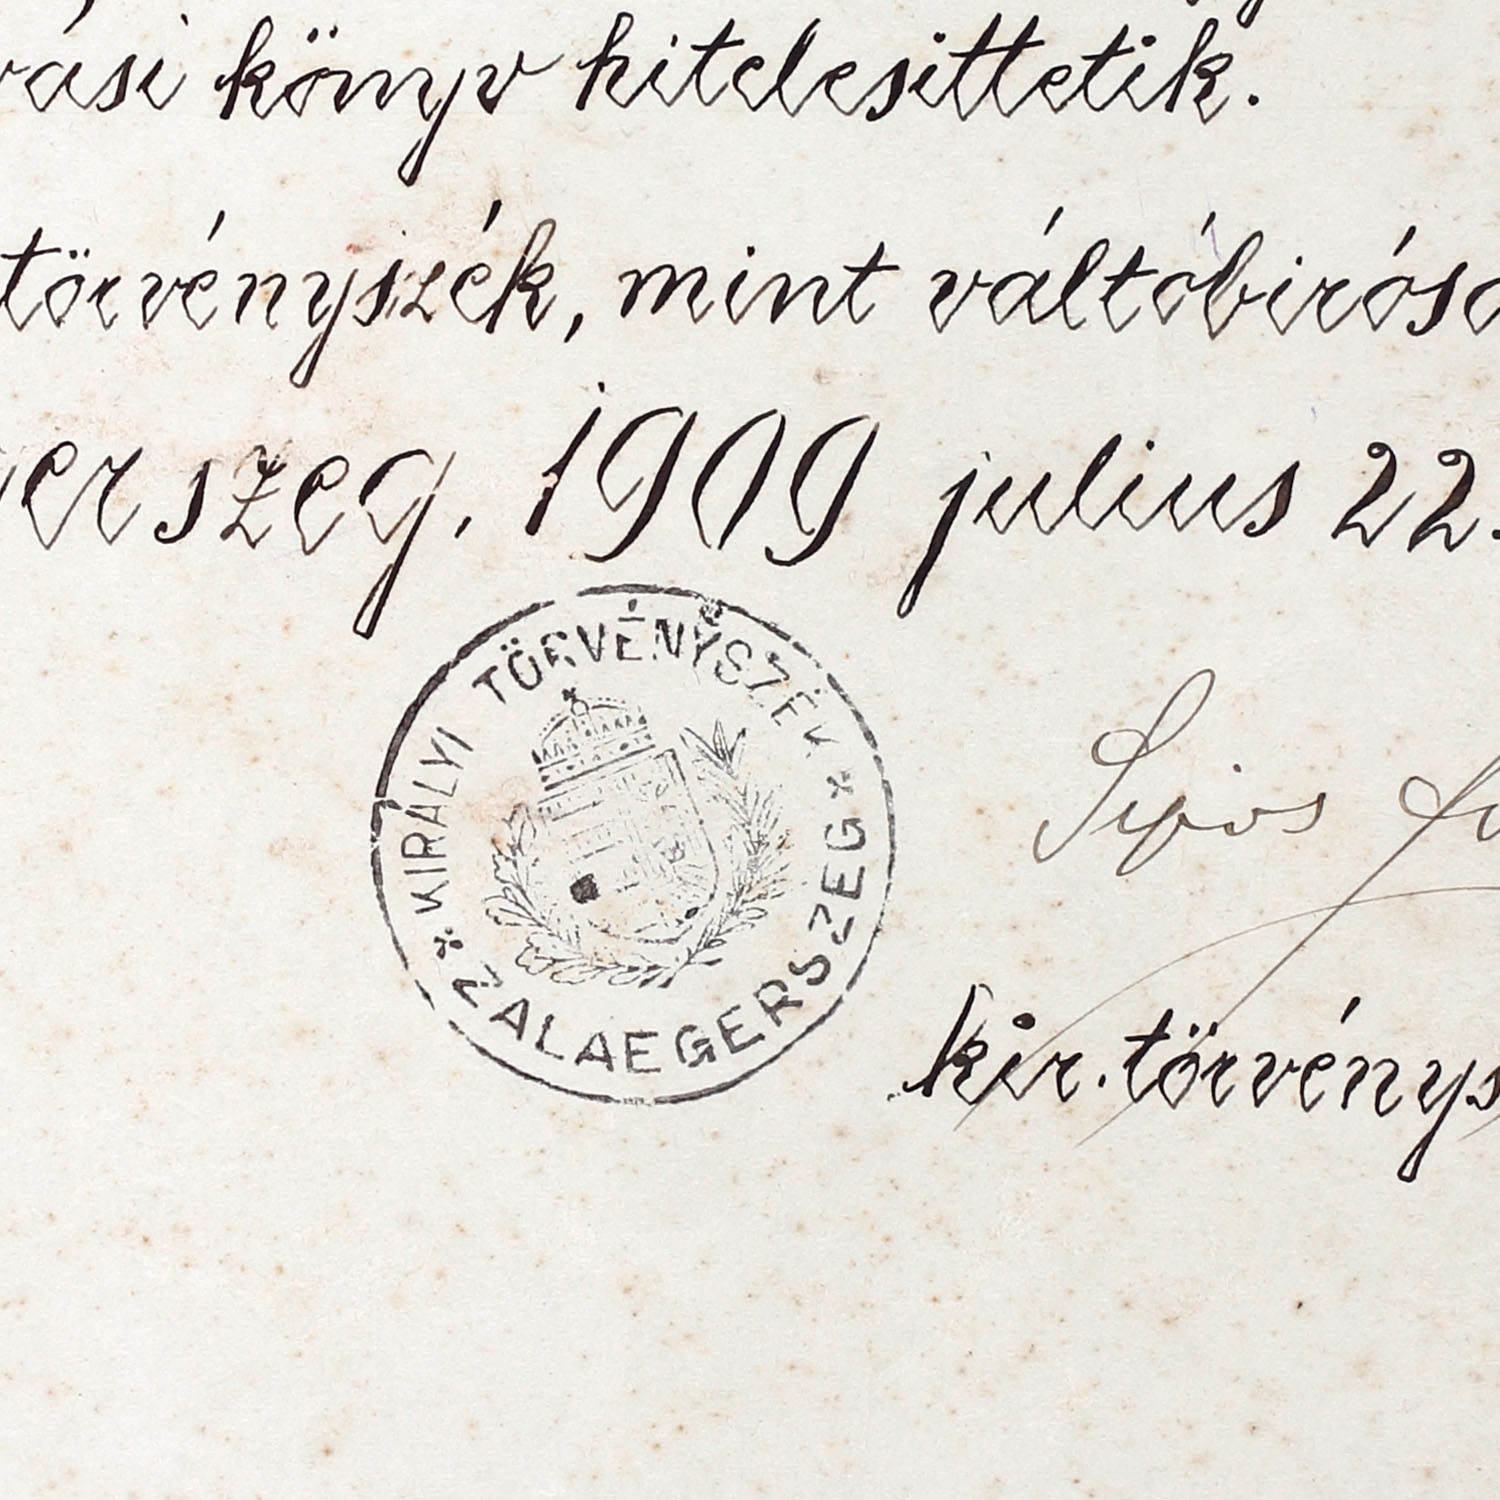 vási könyv hitelesittetik.
törvényszék, mint váltóbirósa
erszeg, 1909 julius 22.
KIRÁLYI TÖRVÉNYSZÉK
* ZALAEGERSZEG *
Sipos
kir. törvénys